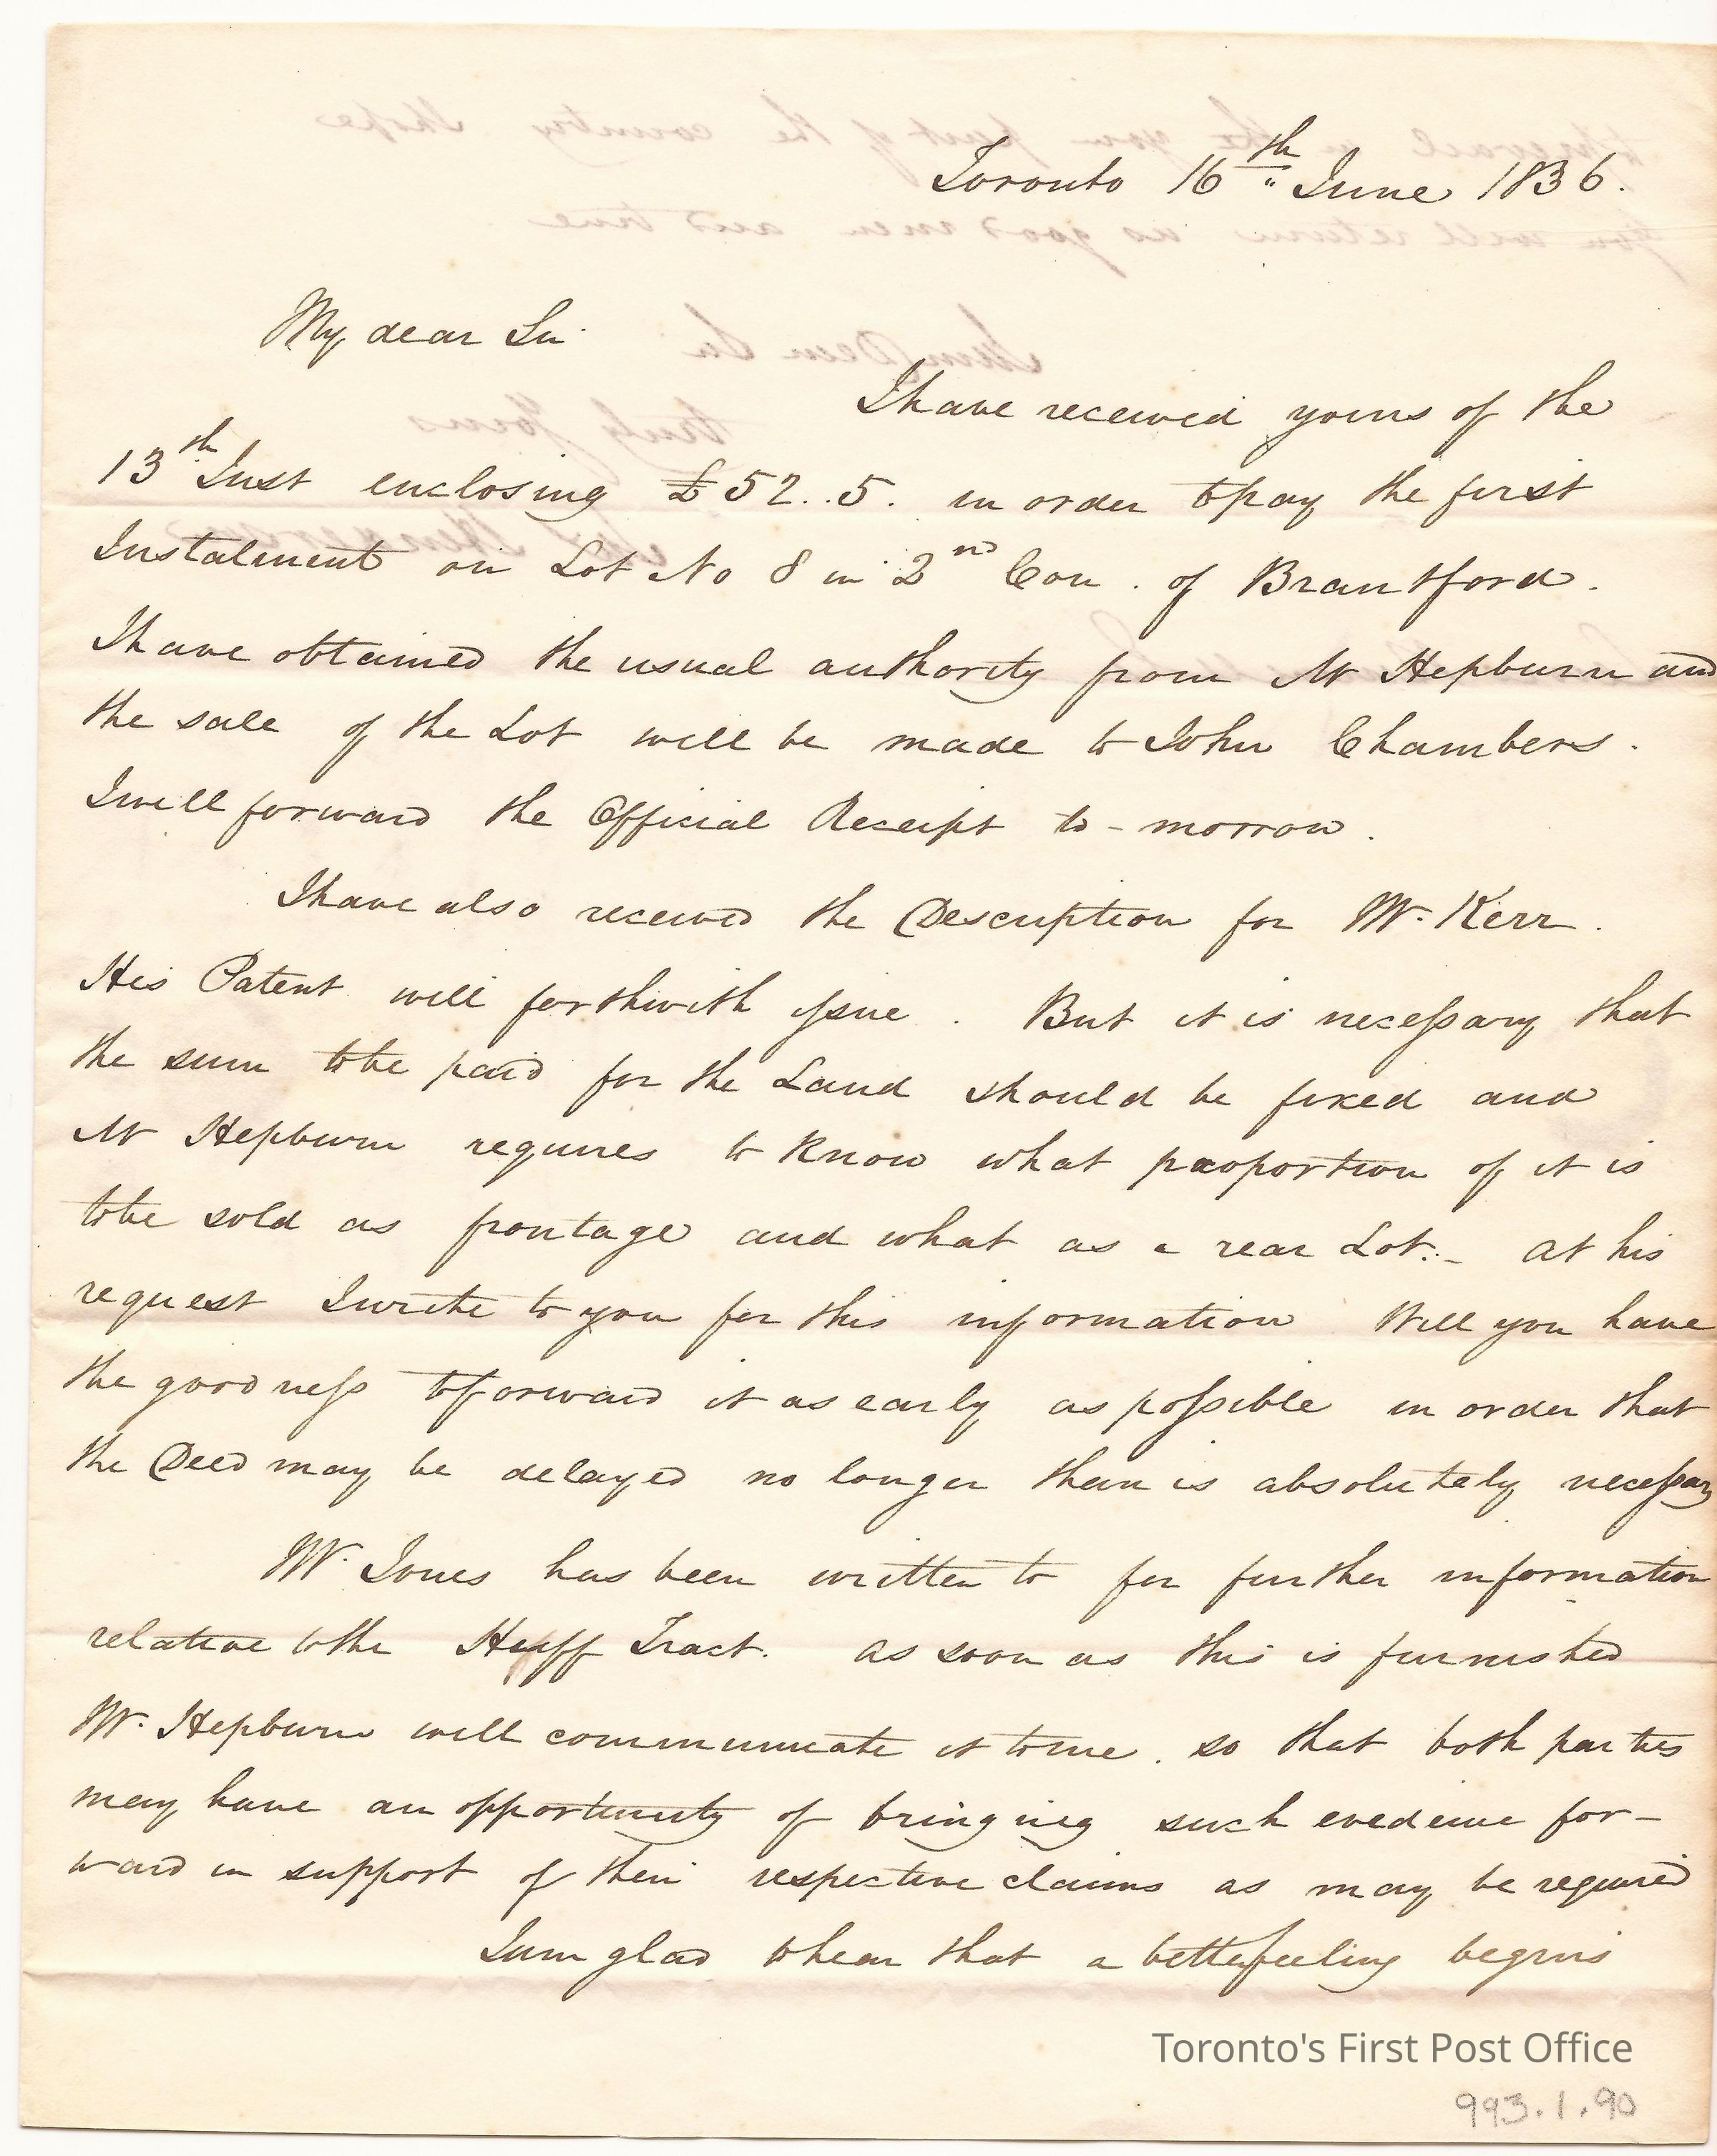 Toronto 16th June 1836.
My dear Sir
I have received yours of the
13th Inst enclosing £52..5. in order to pay the first
Instalment on Lot No 8 in 2nd Con. of Brantford.
I have obtained the usual authority from Mr Hepburn and
the sale of the Lot will be made to John Chambers.
I will forward the Official Receipt to-morrow.
I have also received the Description for Mr. Kerr.
His Patent will forthwith issue. But it is necessary that
the sum to be paid for the Land should be fixed and
Mr Hepburn requires to know what proportion of it is
to be sold as frontage and what as a rear Lot.- at his
request I write to you for this information Will you have
the goodness to forward it as early as possible in order that
the Deed may be delayed no longer than is absolutely necessary
Mr. Jones has been written to for further information
relative to the Huff Tract. as soon as this is furnished
Mr. Hepburn will communicate it to me. so that both parties
may have an opportunity of bringing such evidence for-
ward in support of their respective claims as may be required
I am glad to hear that a better feeling begins
Toronto's First Post Office
993.1.90